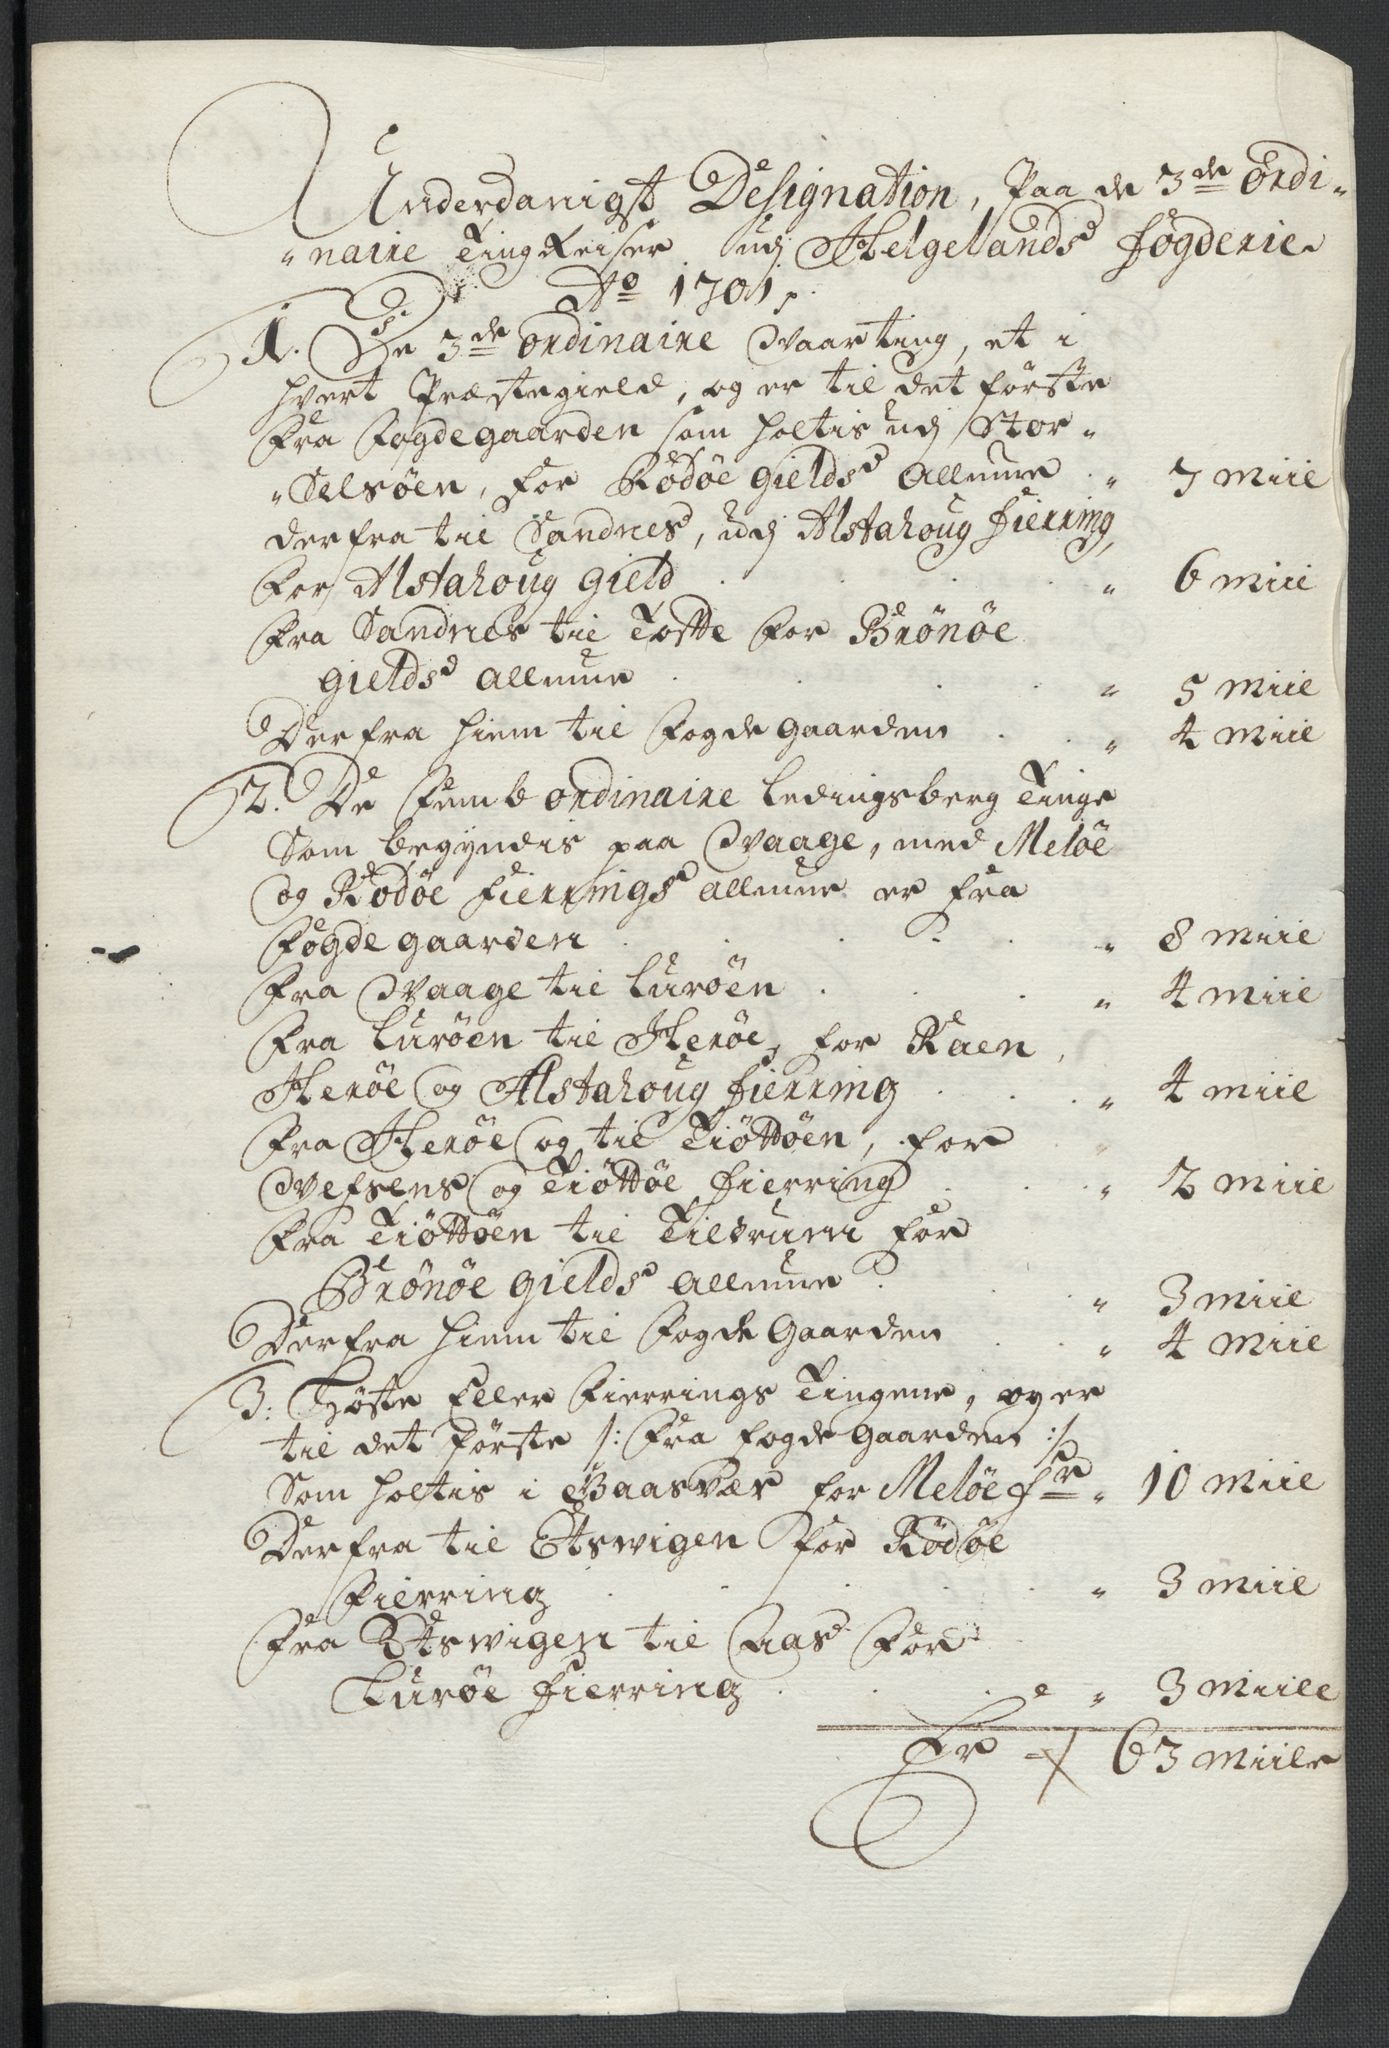 Underdanigst Designation, Paa de 3de Ordi„
„naire TingReiser udj Helgelands fogderie
Ao 1701.
1. De 3de ordinaire Waarting, et i
hvert Præstegield, og er til det første
fra fogdegaarden som holtis udj Stor„
„Selsøen, for Rødøe Gields Allmue „ 7 miil
derfra til Sandnes, udj Alstahoug fierring,
for Alstahoug Gield „ 6 miil
fra Sandnes til Tofte for Brønøe
gields Allmue „ 5 miil
Derfra hiem til fogde gaarden „ 4 miil
2. De femb ordinaire Ledingsberg Tinge
Som begyndis paa Waage, med Meløe
og Rødøe fierrings allmue er fra
fogde gaarden „ 8 miil
fra Waage til Lurøen „ 4 miil
fra Lurøen til Herøe, for Raen,
Herøe og Alstahoug fierring „ 4 miil
fra Herøe og til Tiøttøen, for
Wefsens og Tiøttøe fierring „ 2 miil
fra Tiøttøen til Tilrum for
Brønøe gields Allmue „ 3 miil
Derfra hiem til fogde Gaarden „ 4 miil
3. Høste Eller fierrings Tingene, og er
til det første /: fra fogde Gaarden :/
Som holtis i Baasvær for Meløe fr „ 10 miil
Derfra til Etswigen for Rødøe
fierring „ 3 miil
fra Etswigen til Aas for
Lurøe fierring „ 3 miile
Er 63 miile